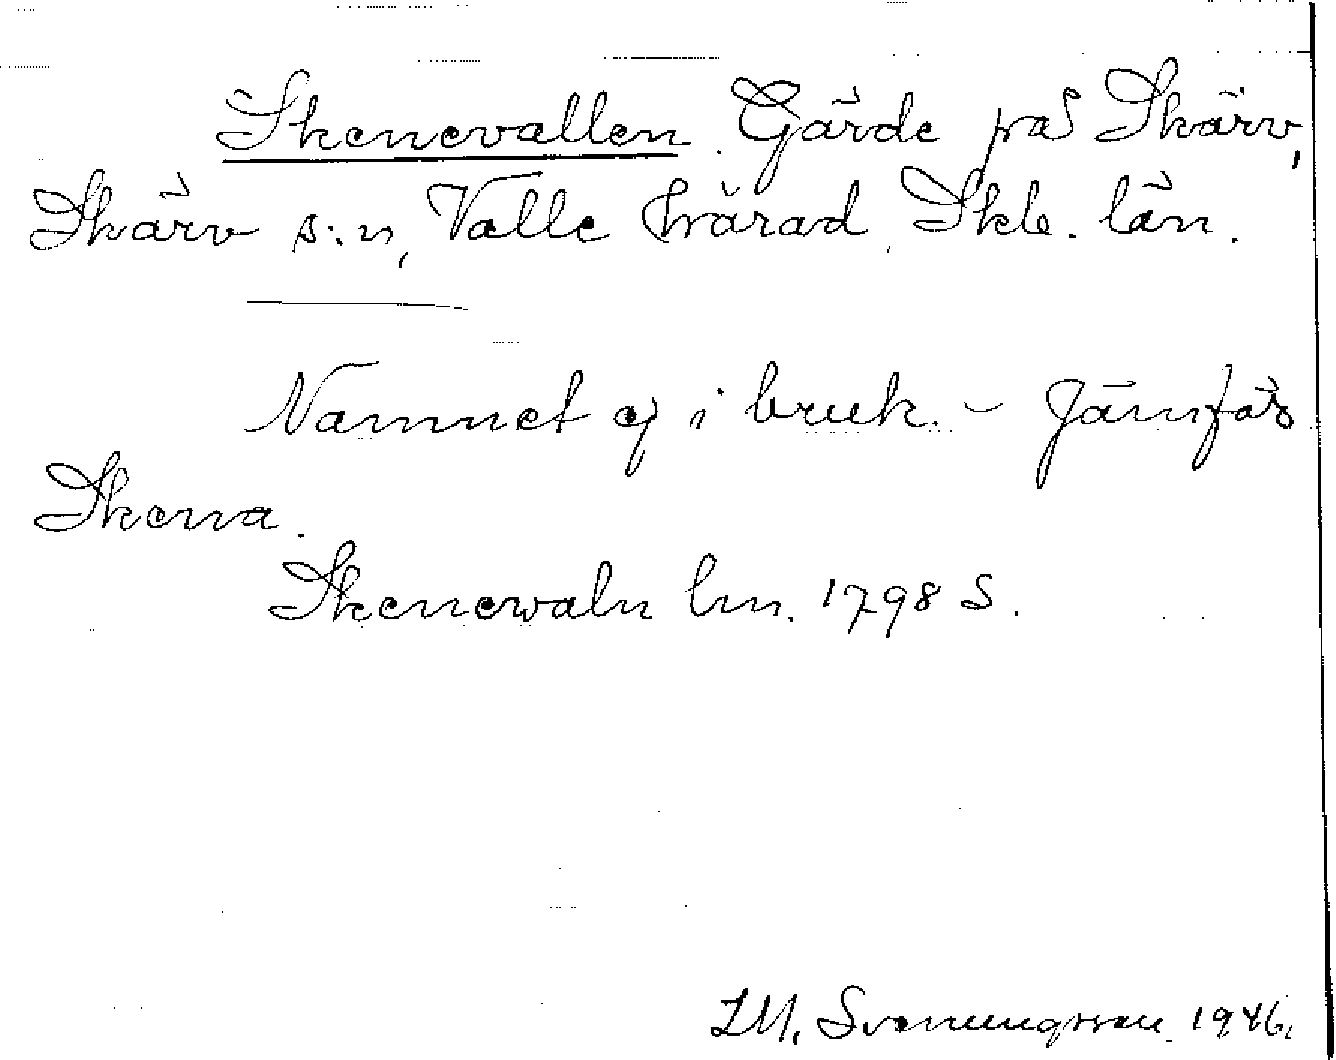 Skenevallen. Gärde på Skärv,
Skärv s:n, Valle härad, Skb. län.
Namnet ej i bruk. - Jämför
Skena.
Skenewaln lm. 1798 S.
LM. Svenungsson 1946.